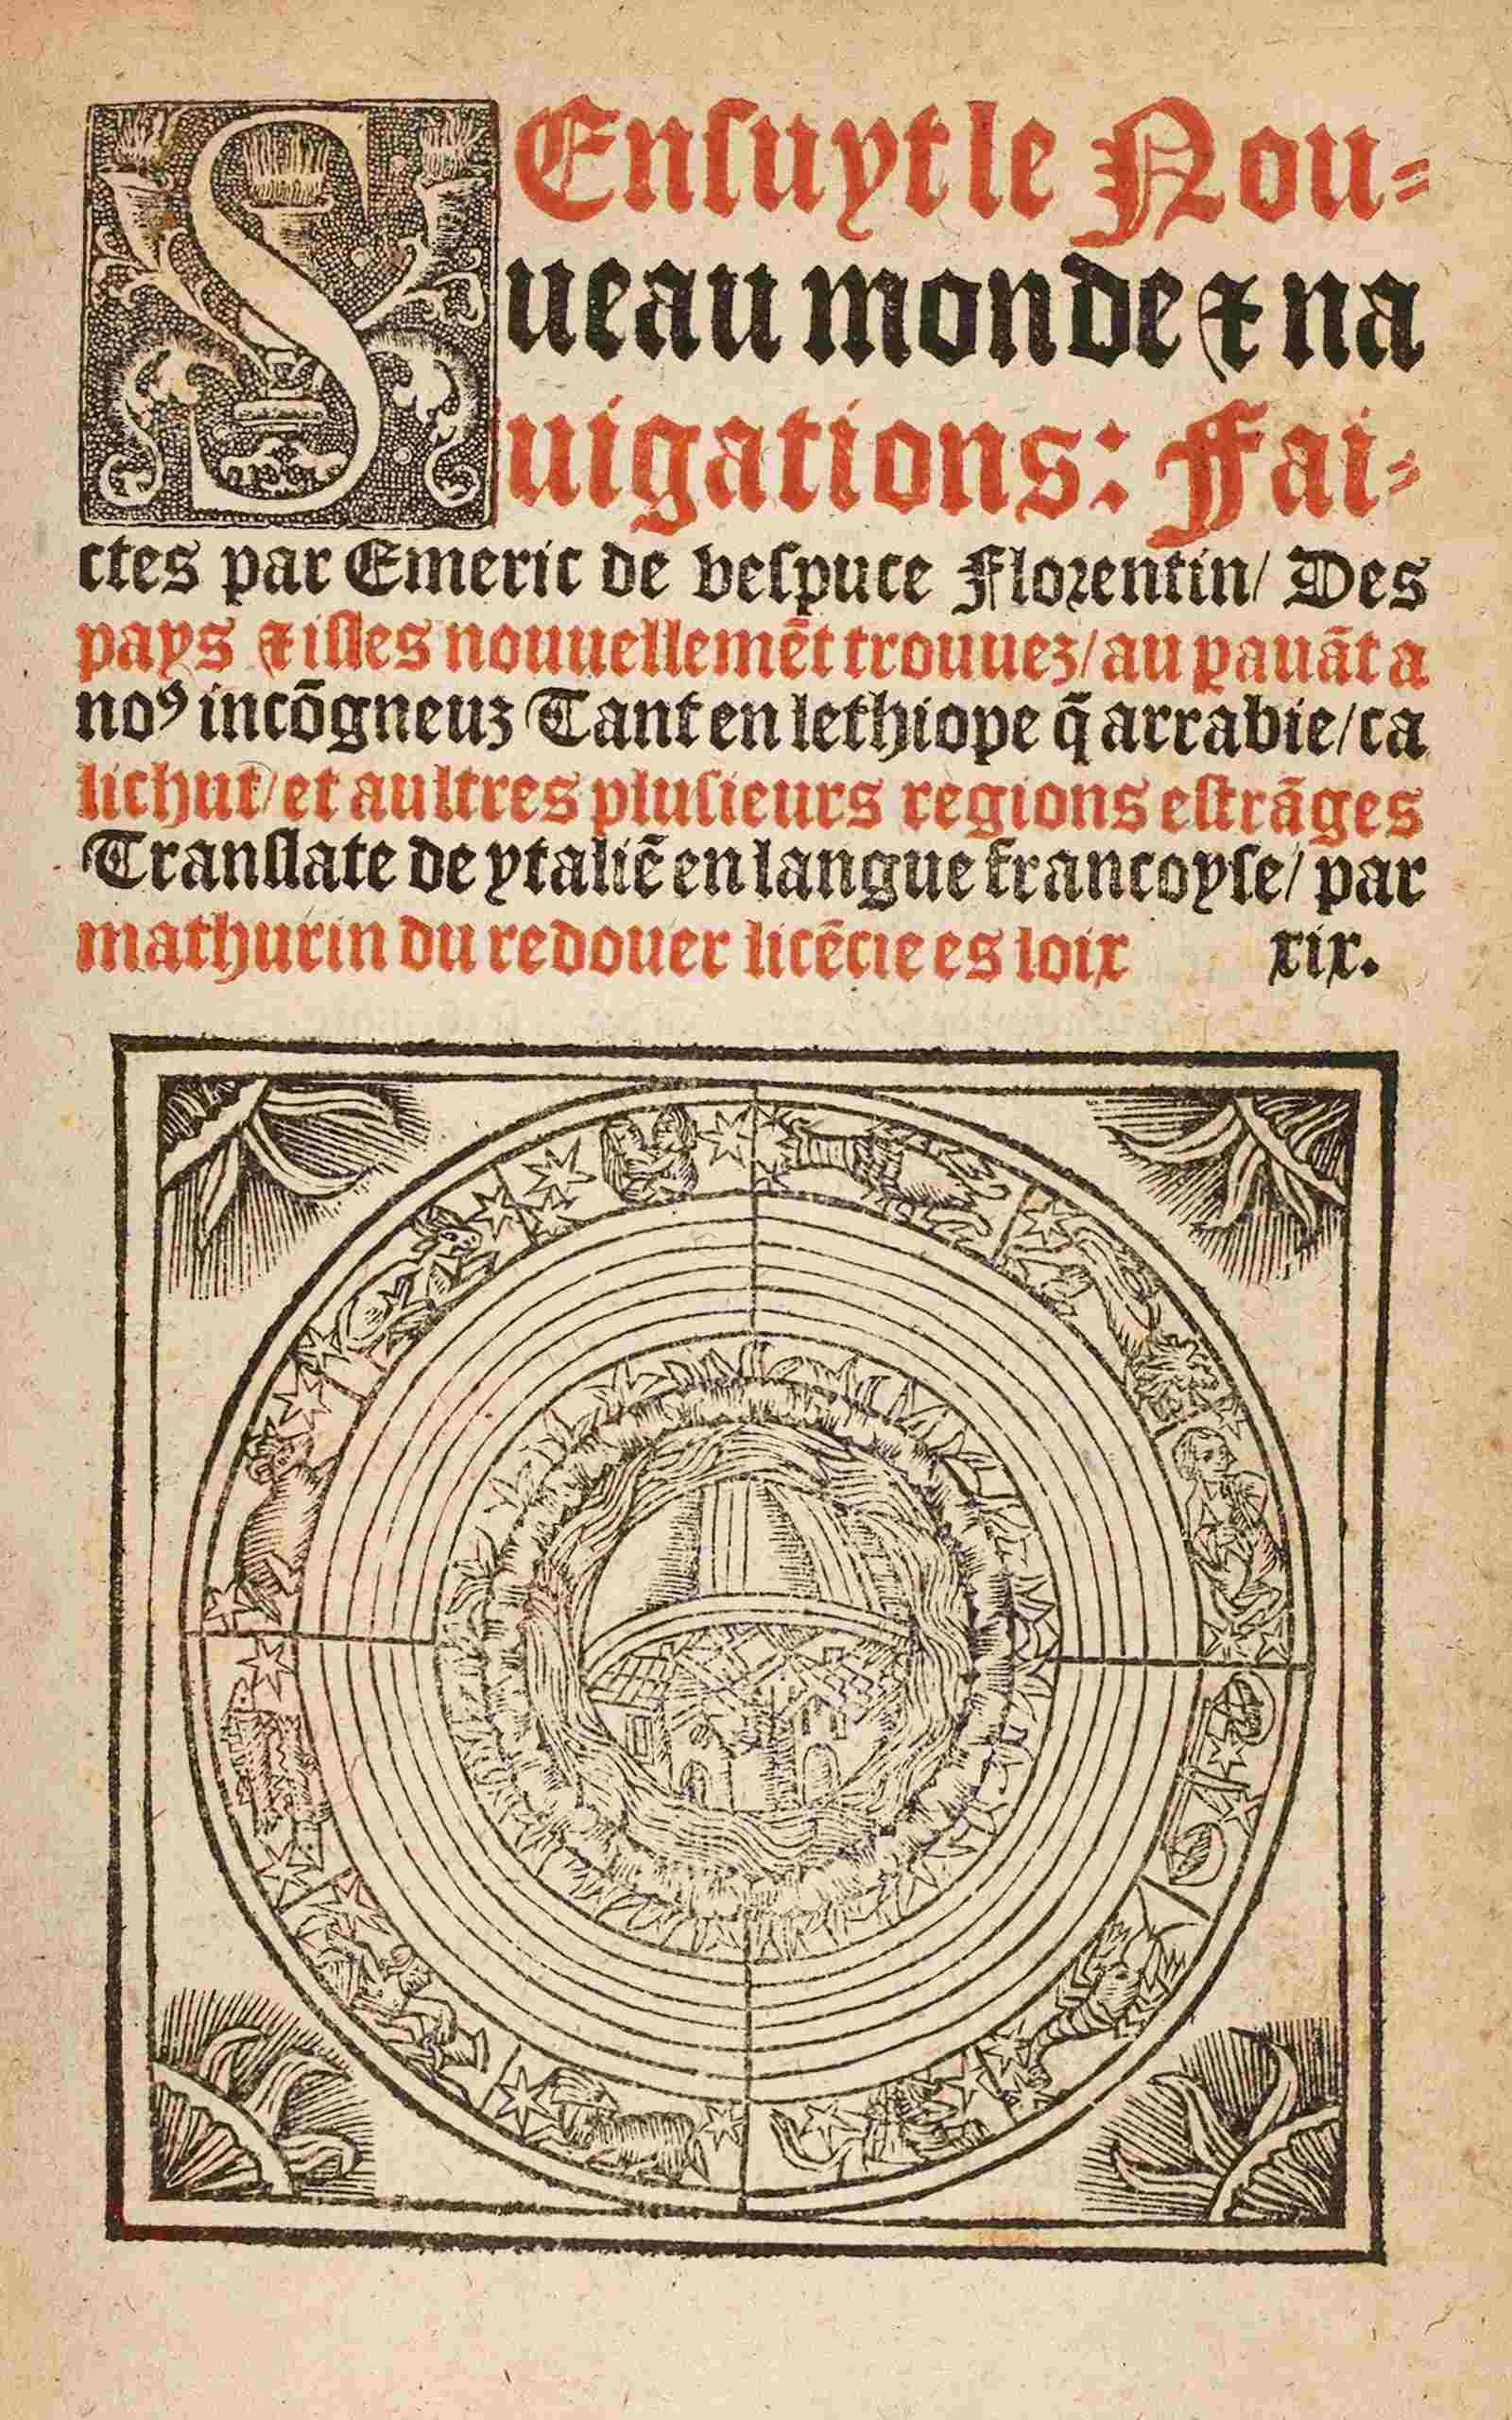 SEnſuyt le Nou⸗
ueau monde ⁊ na
uigations: Fai⸗
ctes par Emeric de veſpuce Florentin/ Des
pays ⁊ iſles nouuellemēt trouuez/ au ꝑauāt a
noꝰ incōgneuz Tant en lethiope q̄ arrabie/ ca
lichut/ et aultres pluſieurs regions eſtrāges
Tranſlate de ytaliē en langue francoyſe/ par
mathurin du redouer licēcie es loix xix.